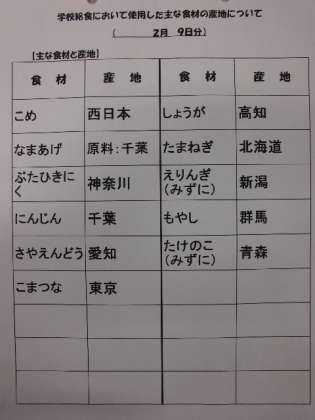 学校給食において使用した主な食材の産地について
( 2月 9日分)
【主な食材と産地】
食 材 産 地 食 材 産 地
こめ 西日本 しょうが 高知
なまあげ 原料:千葉 たまねぎ 北海道
ぶたひきにく 神奈川 えりんぎ(みずに) 新潟
にんじん 千葉 もやし 群馬
さやえんどう 愛知 たけのこ(みずに) 青森
こまつな 東京